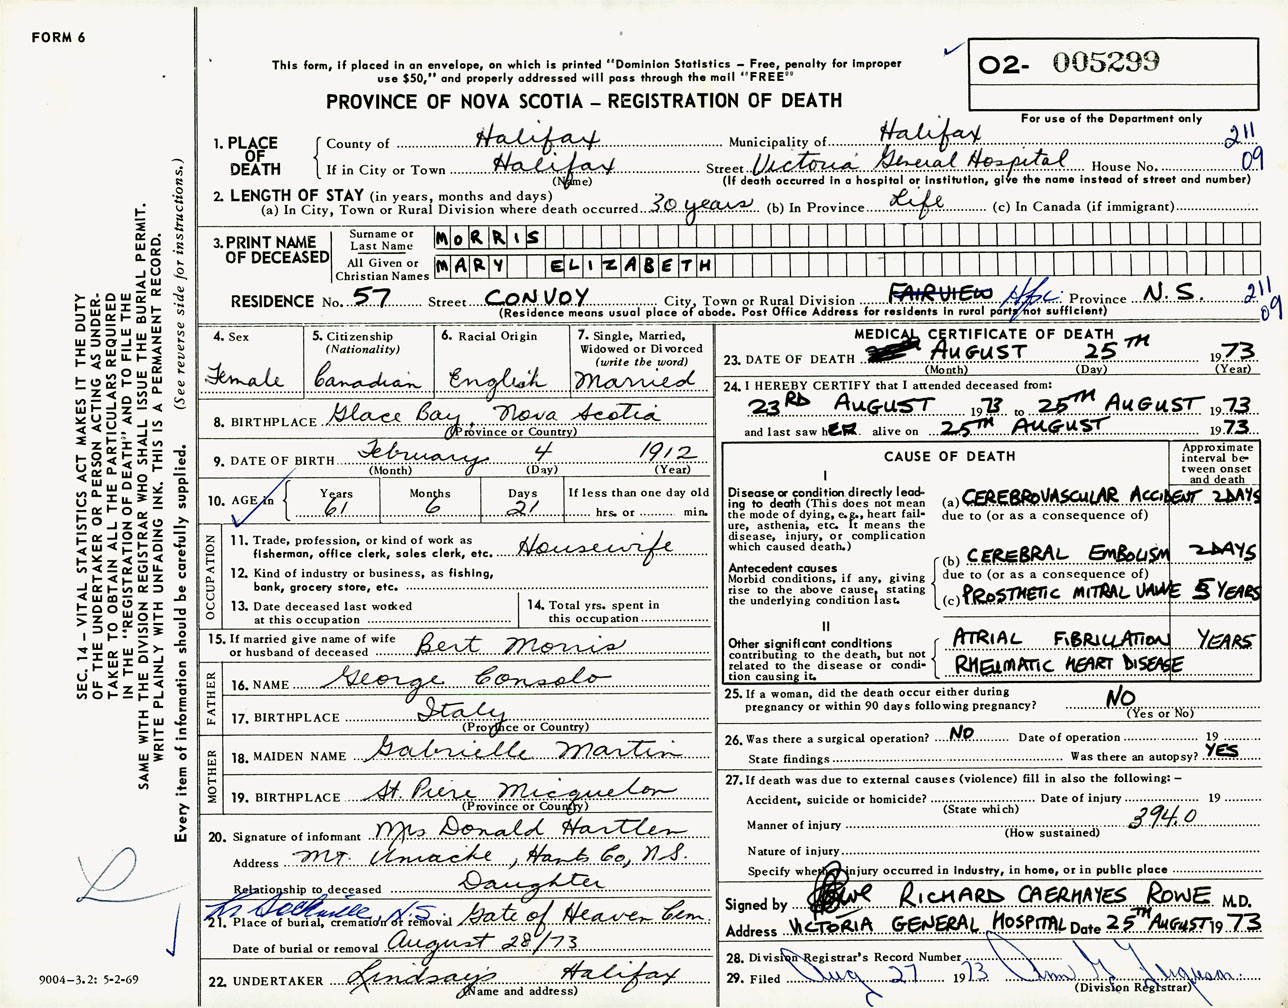 FORM 6
This form, if placed in an envelope, on which is printed "Dominion Statistics – Free, penalty for improper
use $50," and properly addressed will pass through the mail "FREE"
O2- 005299
PROVINCE OF NOVA SCOTIA – REGISTRATION OF DEATH
For use of the Department only
211
09
1. PLACE OF DEATH
County of Halifax Municipality of Halifax
If in City or Town Halifax Street Victoria General Hospital House No.
(Name) (If death occurred in a hospital or institution, give the name instead of street and number)
2. LENGTH OF STAY (in years, months and days)
(a) In City, Town or Rural Division where death occurred 30 years (b) In Province Life (c) In Canada (if immigrant)
3. PRINT NAME OF DECEASED
Surname or Last Name MORRIS
All Given or Christian Names MARY ELIZABETH
RESIDENCE No. 57 Street CONVOY City, Town or Rural Division FAIRVIEW Hfx Province N.S. 211 09
(Residence means usual place of abode. Post Office Address for residents in rural parts not sufficient)
SEC. 14 – VITAL STATISTICS ACT MAKES IT THE DUTY
OF THE UNDERTAKER OR PERSON ACTING AS UNDER-
TAKER TO OBTAIN ALL THE PARTICULARS REQUIRED
IN THE "REGISTRATION OF DEATH" AND TO FILE THE
SAME WITH THE DIVISION REGISTRAR WHO SHALL ISSUE THE BURIAL PERMIT.
WRITE PLAINLY WITH UNFADING INK. THIS IS A PERMANENT RECORD.
Every item of information should be carefully supplied. (See reverse side for instructions.)
4. Sex
Female
5. Citizenship
(Nationality)
Canadian
6. Racial Origin
English
7. Single, Married,
Widowed or Divorced
(write the word)
Married
8. BIRTHPLACE Glace Bay, Nova Scotia
(Province or Country)
9. DATE OF BIRTH February 4 1912
(Month) (Day) (Year)
10. AGE in
Years Months Days If less than one day old
61 6 21 hrs. or min.
OCCUPATION
11. Trade, profession, or kind of work as
fisherman, office clerk, sales clerk, etc. Housewife
12. Kind of industry or business, as fishing,
bank, grocery store, etc.
13. Date deceased last worked
at this occupation
14. Total yrs. spent in
this occupation
15. If married give name of wife
or husband of deceased Bert Morris
FATHER
16. NAME George Consolo
17. BIRTHPLACE Italy
(Province or Country)
MOTHER
18. MAIDEN NAME Gabrielle Martin
19. BIRTHPLACE St. Piere Micquelon
(Province or Country)
20. Signature of informant Mrs Donald Hartlen
Address Mt. Uniacke, Hants Co, N.S.
Relationship to deceased Daughter
Lr Sackville, N.S.
21. Place of burial, cremation or removal Gate of Heaven Cem.
Date of burial or removal August 28/73
22. UNDERTAKER Lindsay's Halifax
(Name and address)
9004–3.2: 5-2-69
MEDICAL CERTIFICATE OF DEATH
23. DATE OF DEATH AUGUST 25TH 1973
(Month) (Day) (Year)
24. I HEREBY CERTIFY that I attended deceased from:
23RD AUGUST 1973 to 25TH AUGUST 1973
and last saw hER alive on 25TH AUGUST 1973
CAUSE OF DEATH
Approximate
interval be-
tween onset
and death
I
Disease or condition directly lead-
ing to death (This does not mean
the mode of dying, e.g., heart fail-
ure, asthenia, etc. It means the
disease, injury, or complication
which caused death.)
(a) CEREBROVASCULAR ACCIDENT 2 DAYS
due to (or as a consequence of)
(b) CEREBRAL EMBOLISM 2 DAYS
due to (or as a consequence of)
Antecedent causes
Morbid conditions, if any, giving
rise to the above cause, stating
the underlying condition last.
(c) PROSTHETIC MITRAL VALVE 5 YEARS
II
Other significant conditions
contributing to the death, but not
related to the disease or condi-
tion causing it.
ATRIAL FIBRILLATION YEARS
RHEUMATIC HEART DISEASE
25. If a woman, did the death occur either during
pregnancy or within 90 days following pregnancy? NO
(Yes or No)
26. Was there a surgical operation? NO Date of operation 19
State findings Was there an autopsy? YES
27. If death was due to external causes (violence) fill in also the following: –
Accident, suicide or homicide? Date of injury 19
(State which)
Manner of injury 394.0
(How sustained)
Nature of injury
Specify whether injury occurred in industry, in home, or in public place
Signed by Rowe RICHARD CAERHAYES ROWE M.D.
Address VICTORIA GENERAL HOSPITAL Date 25TH AUGUST 1973
28. Division Registrar's Record Number
29. Filed Aug 27 1973 Ann G Ferguson
(Division Registrar)